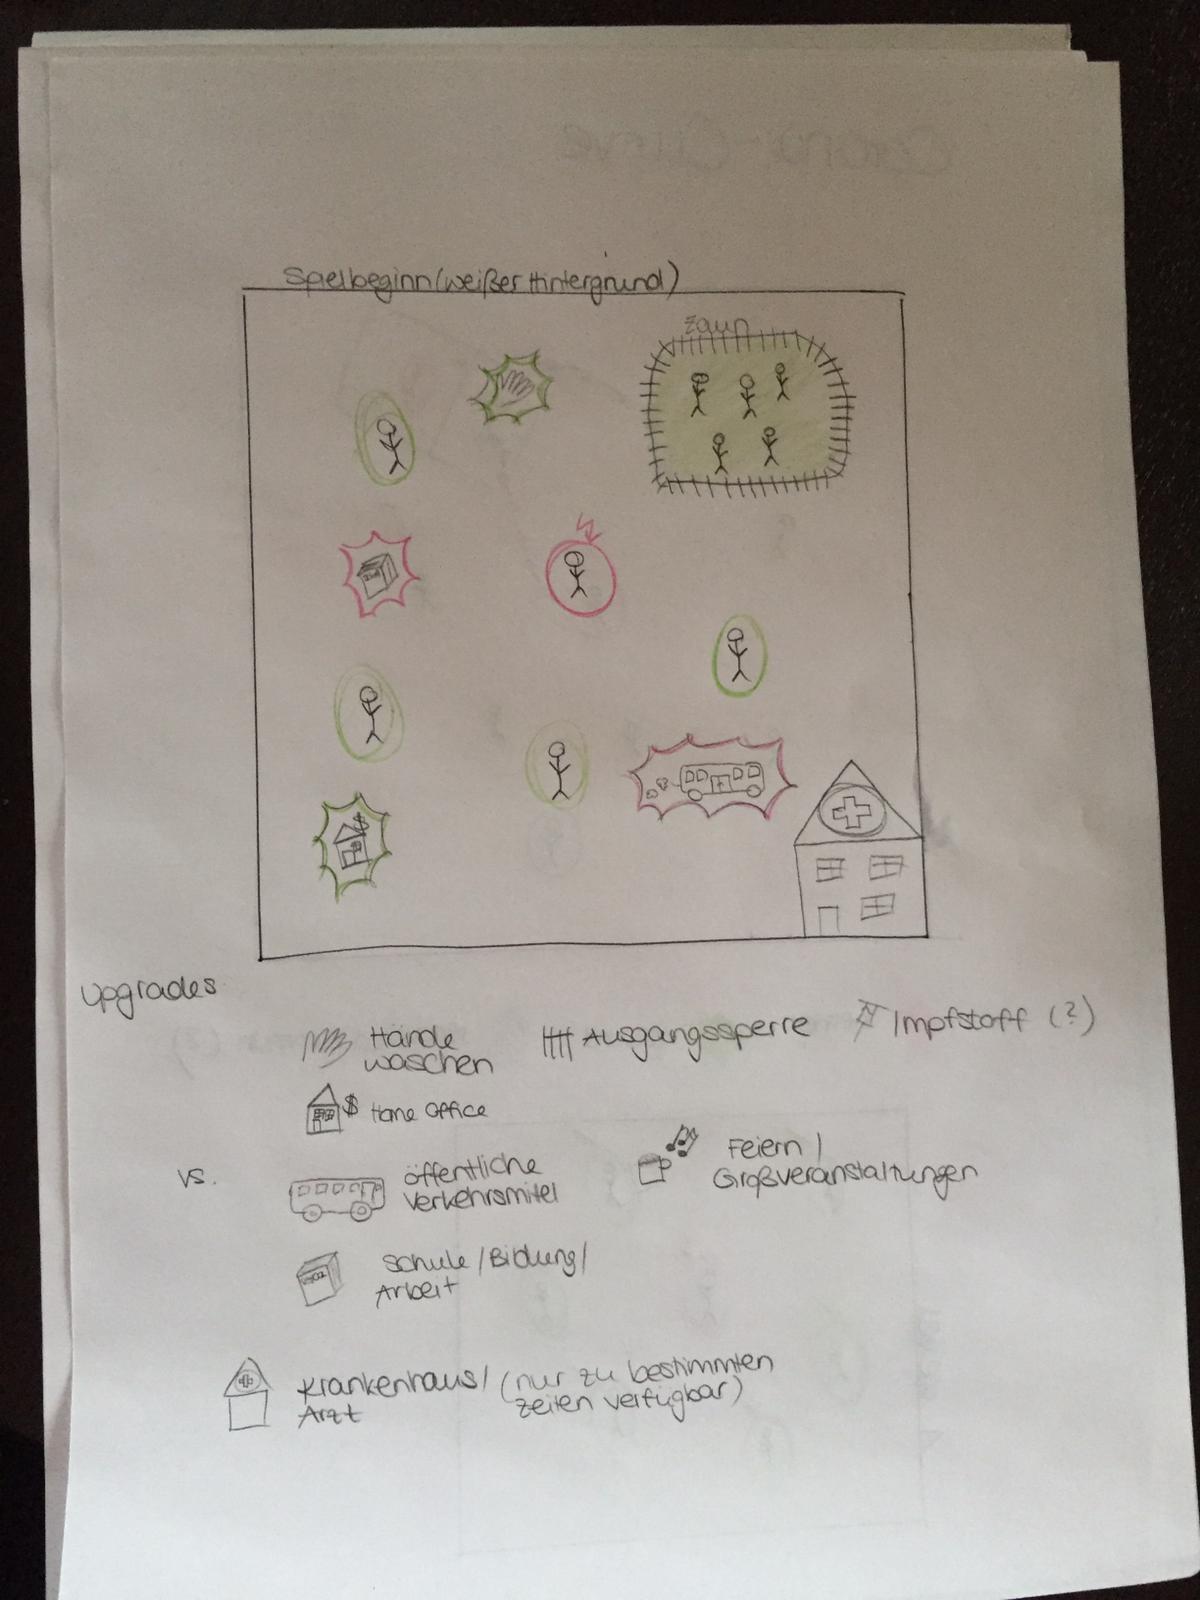 Corona-Curve
Spielbeginn (weißer Hintergrund)
Zaun
Upgrades
Hände
waschen
Ausgangssperre
Impfstoff (?)
$ Home Office
vs.
öffentliche
Verkehrsmitel
Feiern /
Großveranstaltungen
Schule / Bildung /
Arbeit
Krankenhaus / (nur zu bestimmten
Arzt zeiten verfügbar)